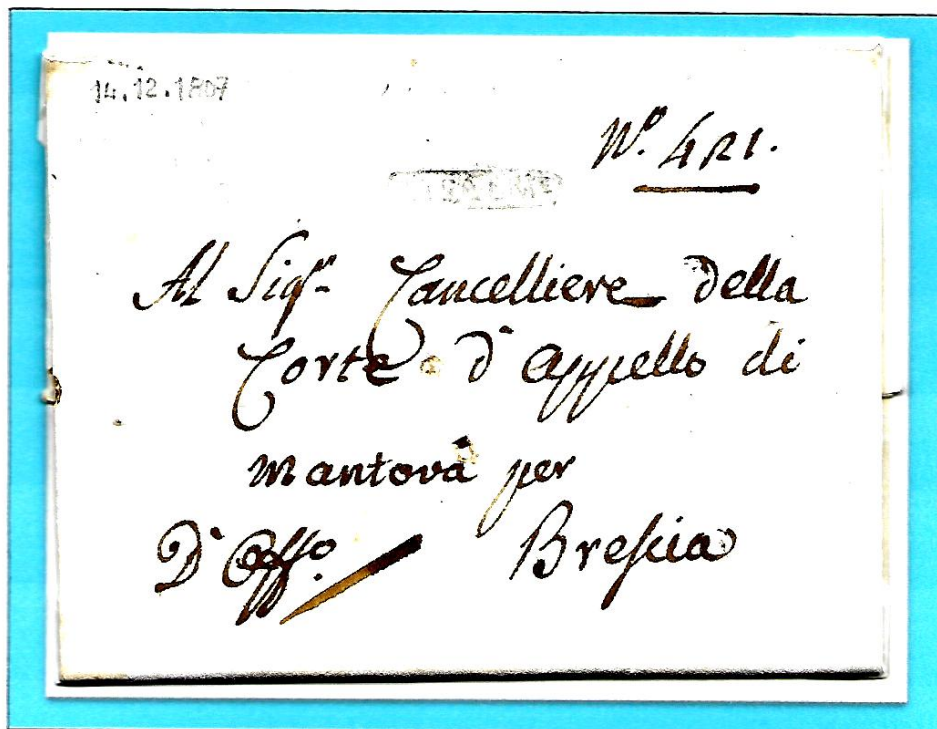 14.12.1807
N.º 421.
Al Sigr. Cancelliere della
Corte d'Appello di
Mantova per
D'Offo. Brescia